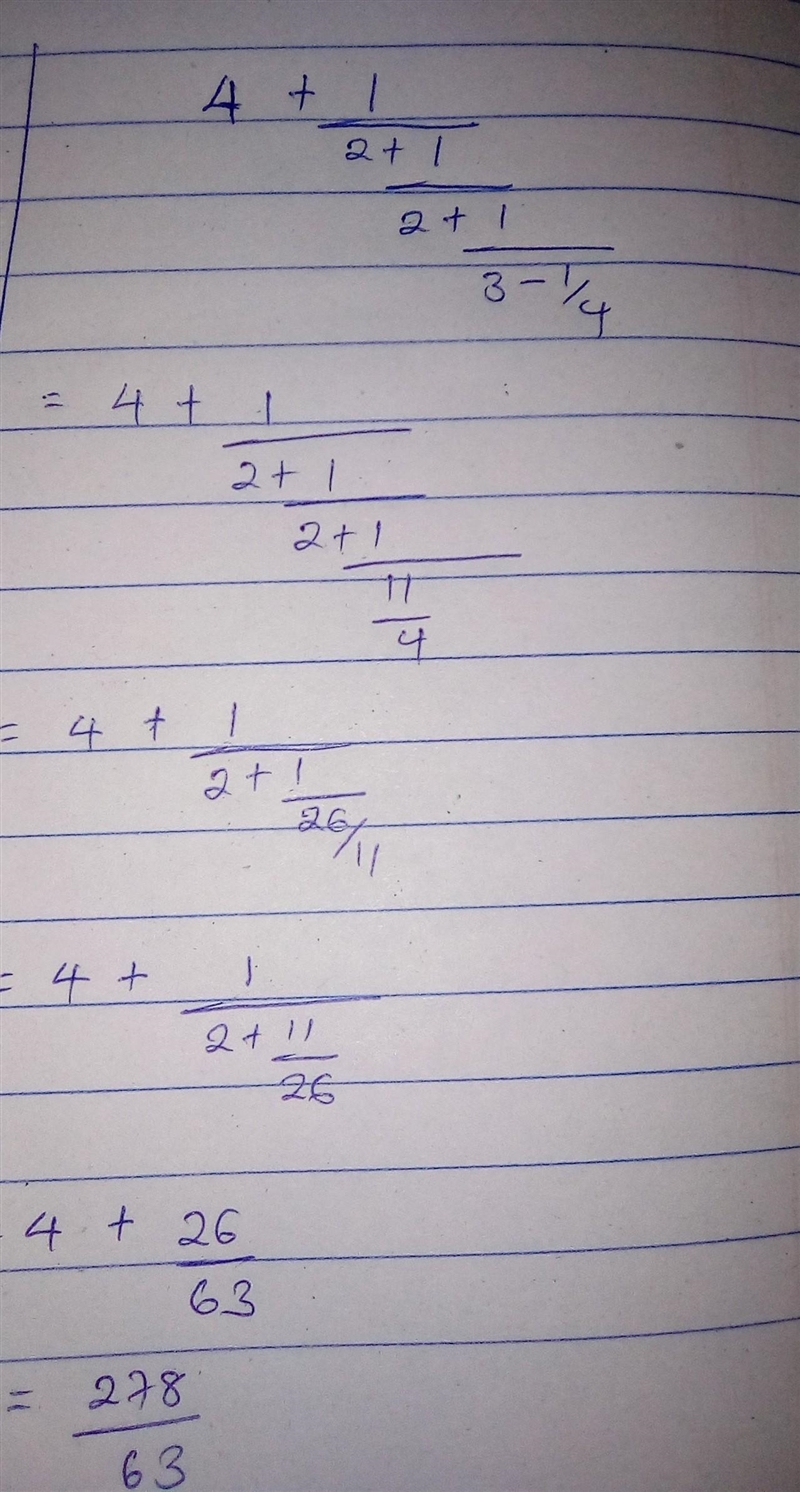 4 + 1
2 + 1
2 + 1
3 - 1/4
= 4 + 1
2 + 1
2 + 1
11
4
= 4 + 1
2 + 1
26/11
= 4 + 1
2 + 11
26
4 + 26
63
= 278
63